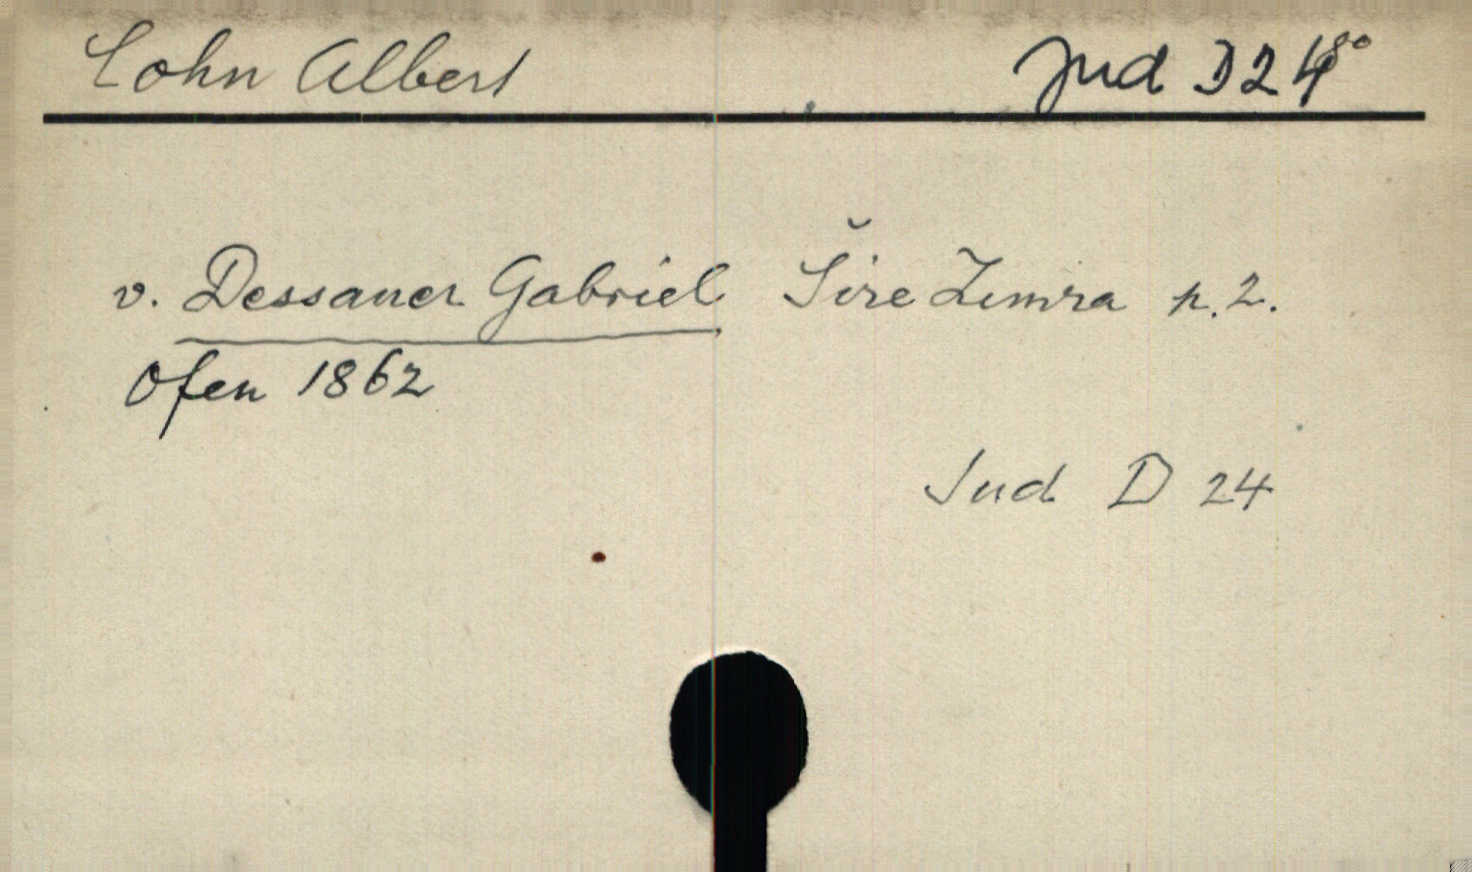 Cohn Albert Jud D 24 8°
v. Dessauer Gabriel Šire Zimra p. 2.
Ofen 1862
Jud D 24